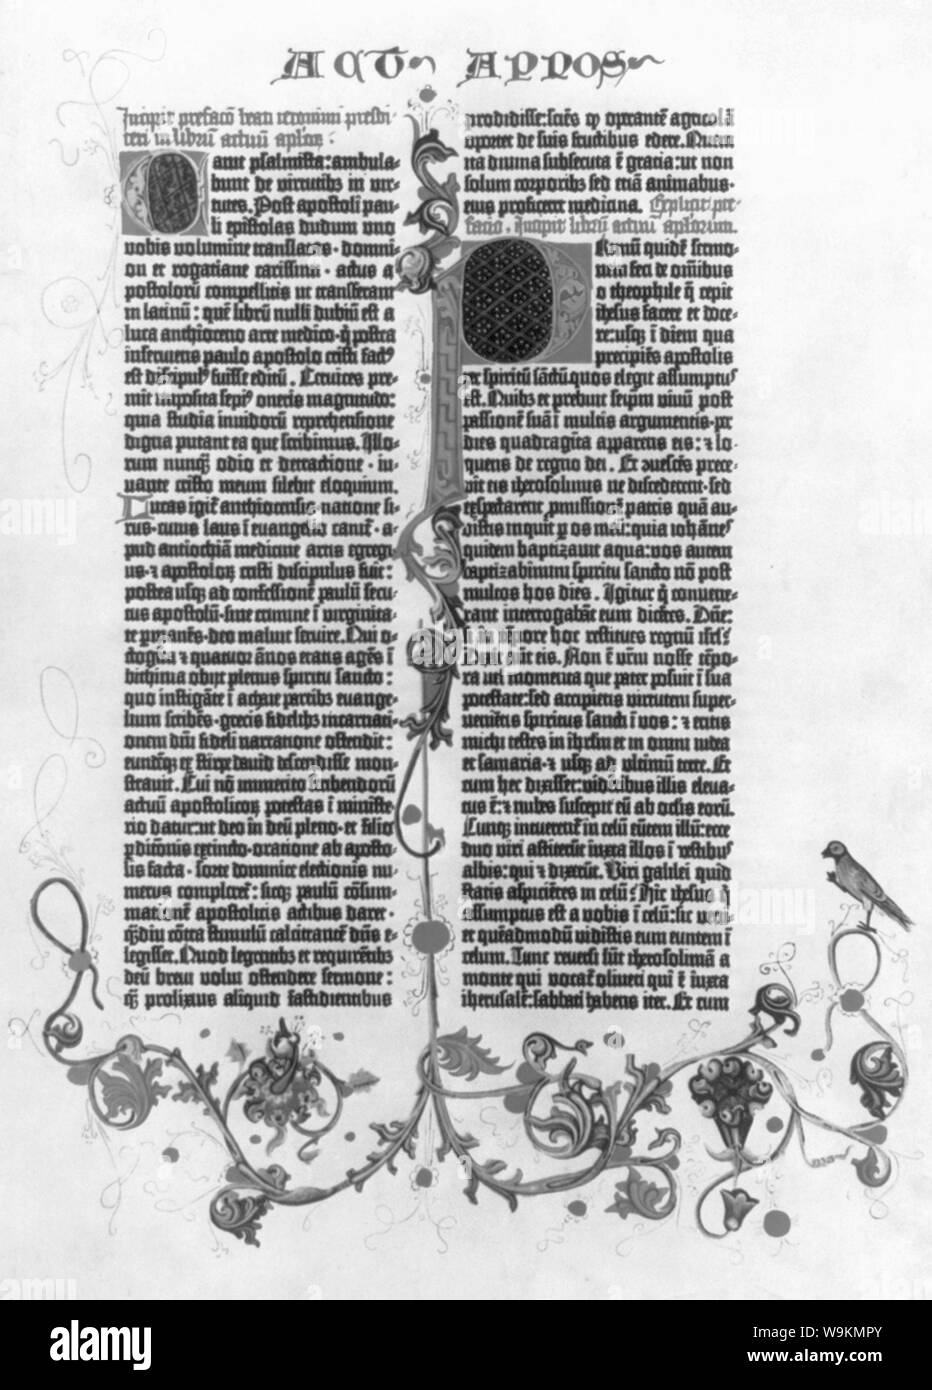 ACT APPOS
Incipit prefacō beati ieronimi presbi-
teri in librū actuū aplōꝝ:
Canit psalmista: ambula-
bunt de virtutibꝫ in vir-
tutes. Post apostoli pau-
li epistolas dudum uno
vobis volumine translatas· domni-
on et rogatiane carissimi· actus a
postolorū compellitis ut transferam
in latinū: quē librū nulli dubiū est a
luca anthioceno arte medico· q̄ postea
inserviens paulo apostolo cristi factꝰ
est discipulꝰ fuisse editū. Cervices pre-
mit imposita sepiꝰ oneris magnitudo:
quia studia invidorū reprehensione
digna putant ea que scribimus. Illo-
rum nunqꝫ odio et detractione· iu-
vante cristo meum silebit eloquium.
Lucas igit᷑ anthiocensis· natione si-
rus· cuius laus ī evangelio canit᷑· a-
pud antiochiā medicine artis egregi-
us· ⁊ apostoloꝝ cristi discipulus fuit:
postea usqꝫ ad confessionē paulū secu-
tus apostolū· sine crimine ī virginita-
te permanēs· deo maluit servire. Qui o-
ctoginta ⁊ quatuor ānos etatis agēs ī
bithinia obijt plenus spiritu sancto:
quo instigāte ī achaie partibꝫ evange-
lium scribēs· grecis fidelibꝫ incarnati-
onem dn̄i fideli narratione ostendit:
eundēqꝫ ex stirpe david descendisse mon-
stravit. Cui nō immerito scribendorū
actuū apostolicoꝝ potestas ī ministe-
rio datur: ut deo in deū pleno· et filio
p̄ditionis extincto· oratione ab aposto-
lis facta· sorte dominice electionis nu-
merus compleret᷑: sicqꝫ paulū cōsum-
mationē apostolicis actibus dare·
quē diu cōtra stimulū calcitrantē dn̄s e-
legisset. Quod legentibꝫ et requirētibꝫ
deū brevi volui ostendere sermone:
qꝫ prolixius aliquid fastidientibus
prodidisse: sciēs ꝙ operantē agricolā
oportet de suis fructibus edere. Quem
ita divina subsecuta ē gracia: ut non
solum corporibꝫ sed etiā animabus·
eius proficeret medicina. Explicit pre-
facio. Incipit librū actuū aplorum.
Primū quidē sermo-
nem feci de om̄ibus
o theophile q̄ cepit
ihesus facere et doce-
re: usqꝫ ī diem qua
precipiēs apostolis
per spiritū sāctū quos elegit assumptꝰ
est. Quibꝫ et prebuit seipm̄ vivū post
passionē suā ī multis argumentis· per
dies quadragīta apparens eis: ⁊ lo-
quens de regno dei. Et cōvescēs prece-
pit eis iherosolimis ne discederent· sed
expectarent p̄missionē patris quā au-
distis inquit per os meū: quia iohānes
quidem baptizavit aqua: vos autem
baptizabimini spiritu sancto nō post
multos hos dies. Igitur q̄ convene-
rant interrogabāt eum dicētes. Dn̄e:
si in tēpore hoc restitues regnū isrl̄?
Dixit aut̄ eis. Non ē vr̄m nosse tēpo-
ra vel momenta que pater posuit ī sua
potestate: sed accipietis virtutem super-
venientis spiritus sancti ī vos: ⁊ eritis
michi testes in ihrl̄m et in omni iudea
et samaria· ⁊ usqꝫ ad ultimū terre. Et
cum hec dixisset: vidētibus illis eleva-
tus ē: ⁊ nubes suscepit eū ab oclis eorū.
Cumqꝫ intuerent᷑ in celū euntem illū: ecce
duo viri astiterūt iuxta illos ī vestibꝰ
albis: qui ⁊ dixerūt. Viri galilei quid
statis aspiciētes in celū? Hic ihesus q̄
assumptus est a vobis ī celū: sic veni-
et quēadmodū vidistis eum euntem ī
celum. Tunc reversi sūt iherosolimā a
monte qui vocat᷑ oliveti qui ē iuxta
iherusalē: sabbati habens iter. Et cum
alamy
alamy
Image ID: W9KMPY
www.alamy.com